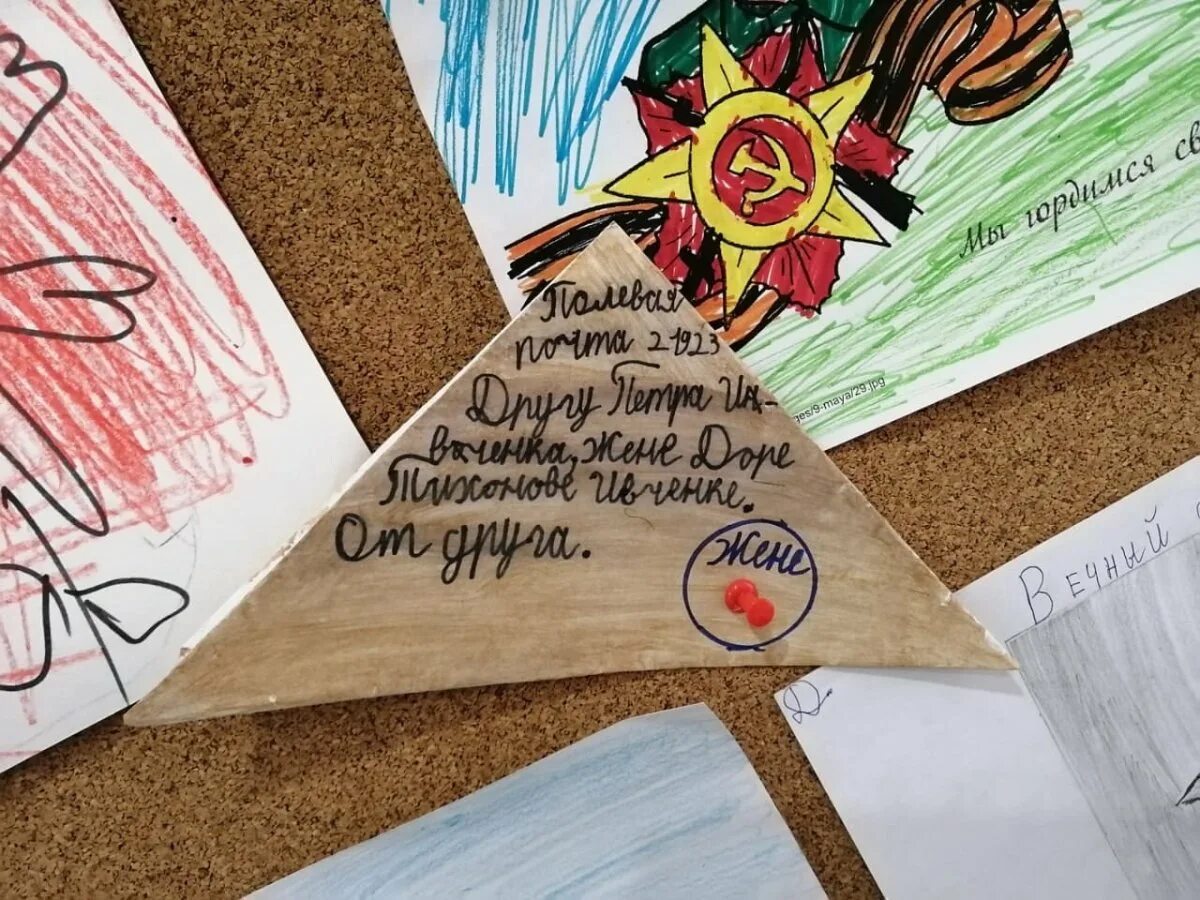 Мы гордимся св
ges/9-maya/29.jpg
Полевая
почта 2-1923
Другу Петра Ив-
ваченка, Жене Доре
Тихонове Ивченке.
От друга.
Жене
Вечный